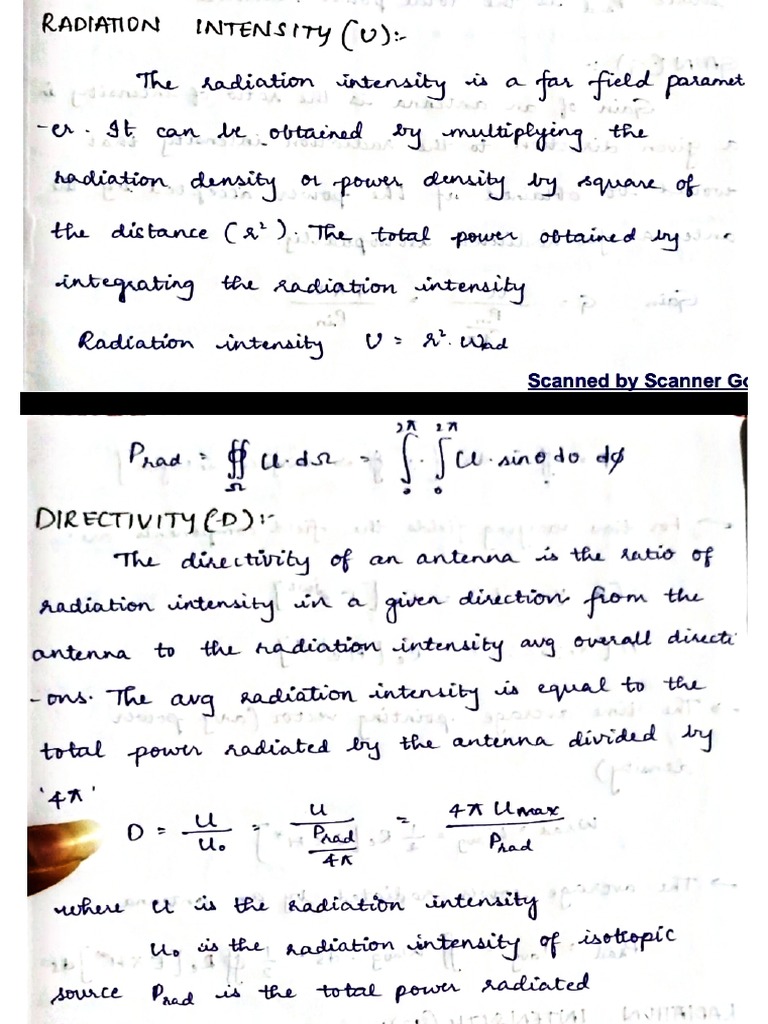 RADIATION INTENSITY (U):-
The radiation intensity is a far field paramet
-er. It can be obtained by multiplying the
radiation density or power density by square of
the distance (r²). The total power obtained by
integrating the radiation intensity
Radiation intensity U = r². Wrad
Scanned by Scanner Go
Prad = ∯Ω U.dΩ = ∫₀²π . ∫₀²π U. sinθ dθ dϕ
DIRECTIVITY (D):-
The directivity of an antenna is the ratio of
radiation intensity in a given direction from the
antenna to the radiation intensity avg overall directi
-ons. The avg radiation intensity is equal to the
total power radiated by the antenna divided by
'4π'
D = U/U₀ = U/(Prad/4π) = 4π Umax/Prad
where U is the radiation intensity
U₀ is the radiation intensity of isotropic
source Prad is the total power radiated